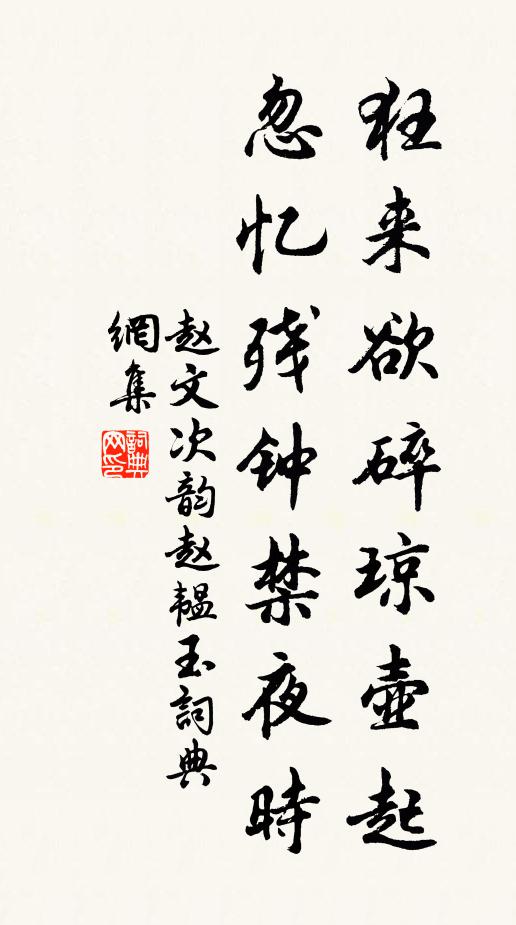 狂来欲碎琼壶起
忽忆残钟禁夜時
赵文次韵赵韫玉詞典
網集
詞典网印